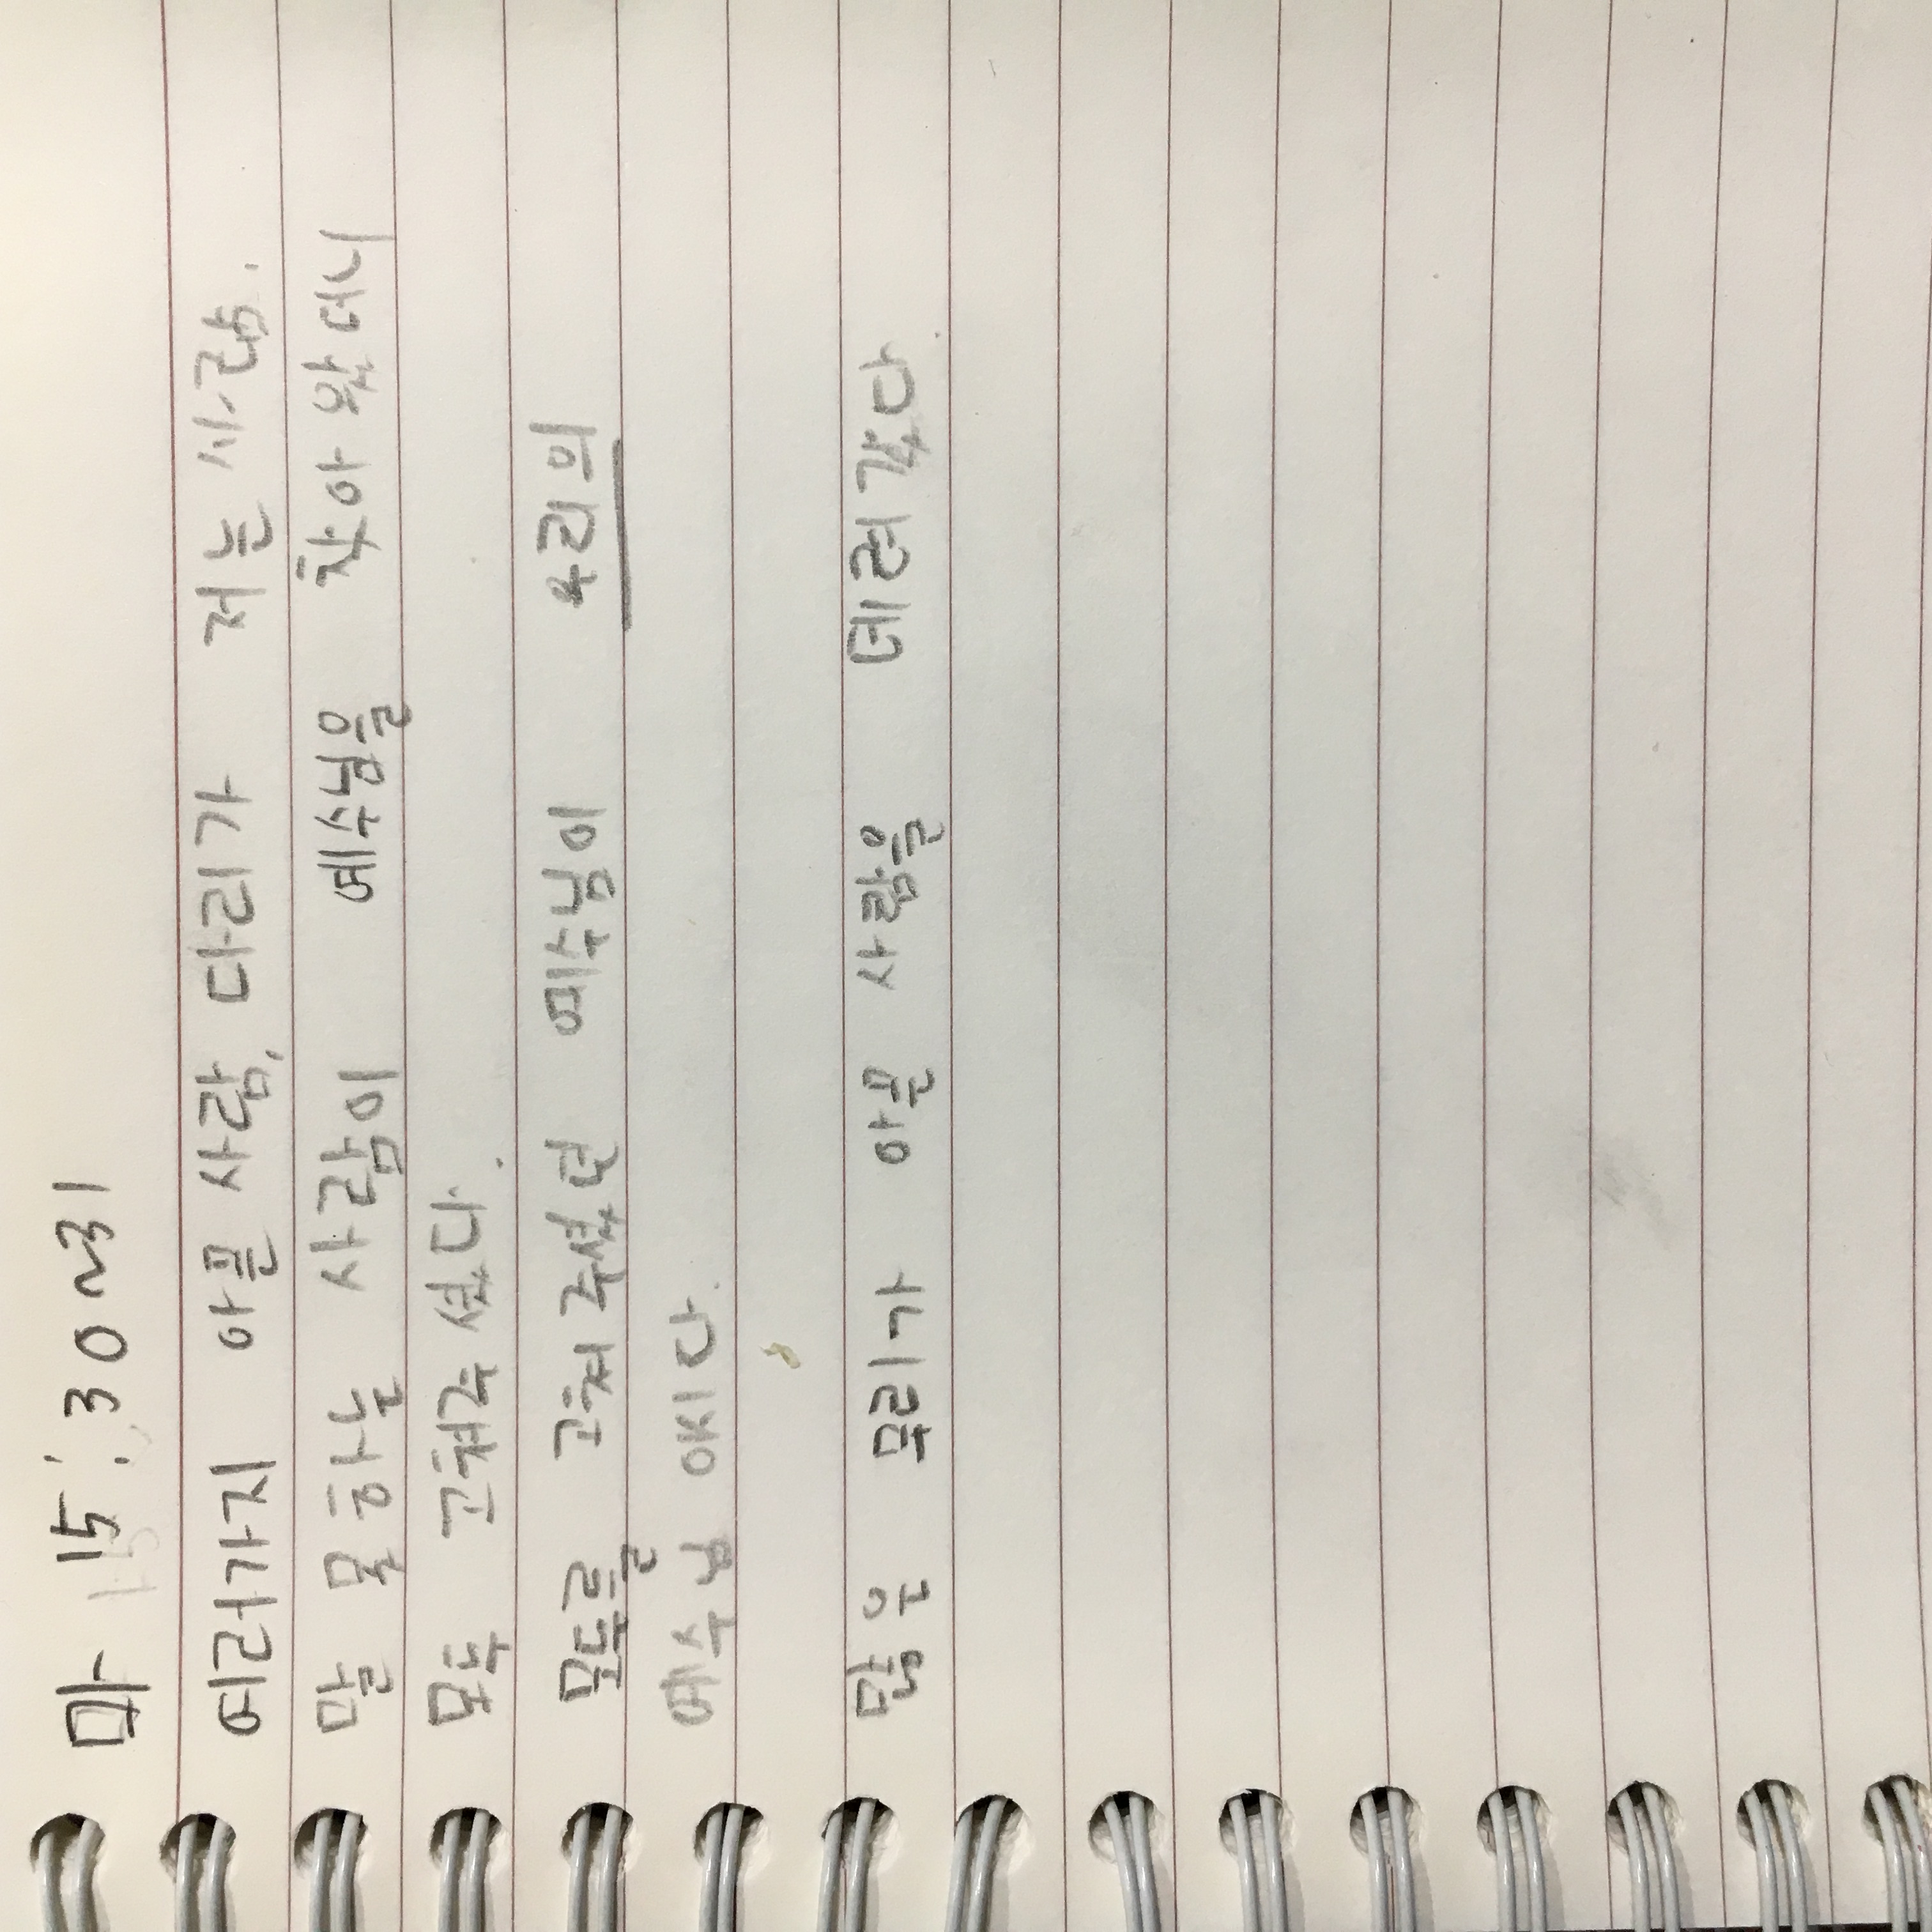 마 15:30~31
여러가지 아픈 사람, 다리가 저는 사람.
말 못 하는 사람이 예수님을 찾아 왔더니
모두 고쳐주셨다.
모두를 고쳐 주셨던 예수님이 우리의
예수님 이다.
많은 무리가 아픈 사람을 데려갔다.